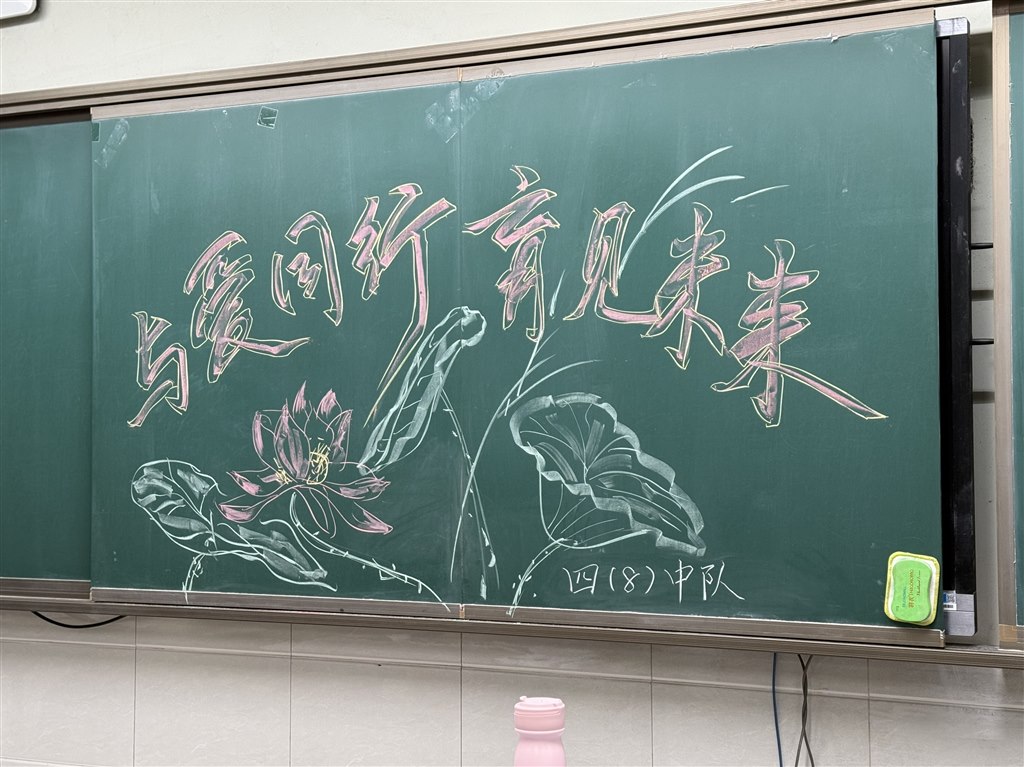 与爱同行育见未来
四(8)中队